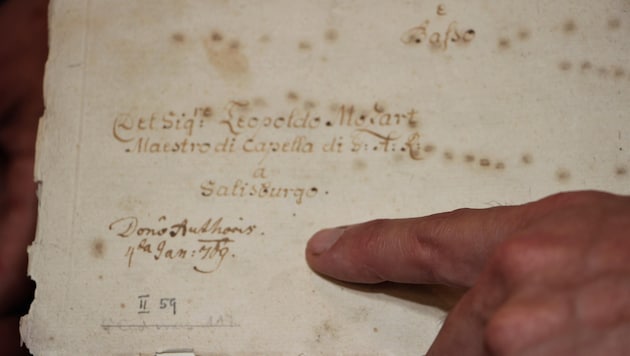 è
Basso
Del Sig:re Leopoldo Mozart
Maestro di Capella di S: A: R:
a
Salisburgo.
Donô Authoris.
4ta Jan: 769.
II 59